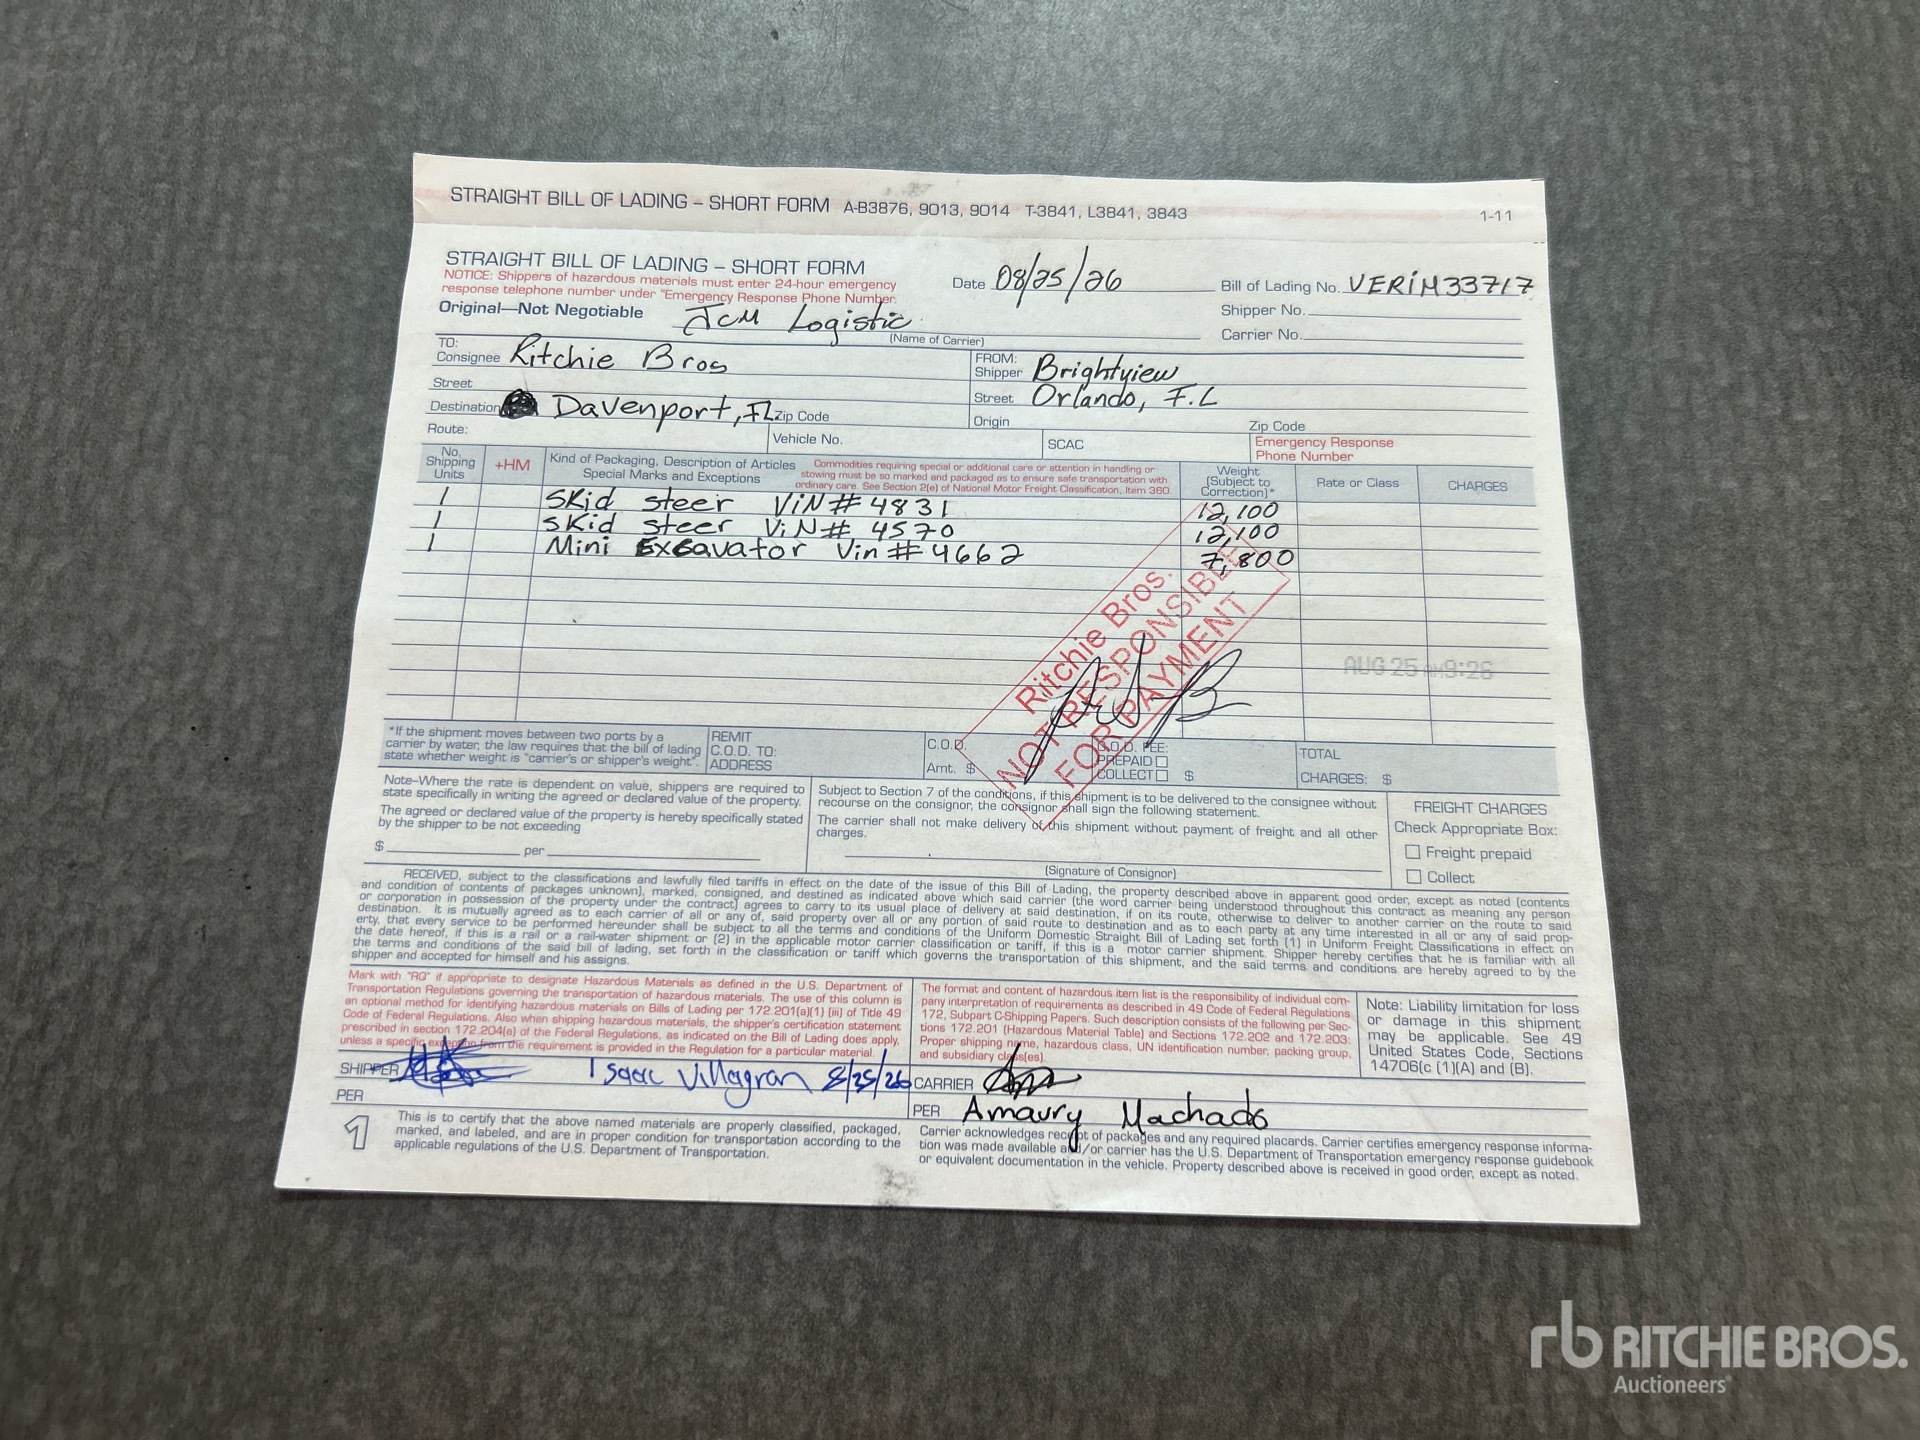 STRAIGHT BILL OF LADING – SHORT FORM A-B3876, 9013, 9014 T-3841, L3841, 3843 1-11
STRAIGHT BILL OF LADING – SHORT FORM
NOTICE: Shippers of hazardous materials must enter 24-hour emergency
response telephone number under "Emergency Response Phone Number.
Original—Not Negotiable
Date 08/25/26
Bill of Lading No. VERIM33717
Shipper No.
Carrier No.
JCM Logistic
(Name of Carrier)
TO:
Consignee Ritchie Bros
Street
Destination Davenport, FL Zip Code
FROM:
Shipper Brightview
Street Orlando, F.L
Origin Zip Code
Route: Vehicle No. SCAC
Emergency Response
Phone Number
No.
Shipping
Units
+HM
Kind of Packaging, Description of Articles
Special Marks and Exceptions
Commodities requiring special or additional care or attention in handling or
stowing must be so marked and packaged as to ensure safe transportation with
ordinary care. See Section 2(e) of National Motor Freight Classification, Item 360.
Weight
(Subject to
Correction)*
Rate or Class
CHARGES
1 Skid steer ViN# 4831 12,100
1 Skid steer ViN# 4570 12,100
1 Mini Excavator Vin# 4662 7,800
Ritchie Bros.
NOT RESPONSIBLE
FOR PAYMENT
AUG 25 AM 9:26
*If the shipment moves between two ports by a
carrier by water, the law requires that the bill of lading
state whether weight is "carrier's or shipper's weight".
REMIT
C.O.D. TO:
ADDRESS
C.O.D.
Amt. $
C.O.D. FEE:
PREPAID
COLLECT $
TOTAL
CHARGES: $
Note—Where the rate is dependent on value, shippers are required to
state specifically in writing the agreed or declared value of the property.
The agreed or declared value of the property is hereby specifically stated
by the shipper to be not exceeding
$ per
Subject to Section 7 of the conditions, if this shipment is to be delivered to the consignee without
recourse on the consignor, the consignor shall sign the following statement.
The carrier shall not make delivery of this shipment without payment of freight and all other
charges.
(Signature of Consignor)
FREIGHT CHARGES
Check Appropriate Box:
Freight prepaid
Collect
RECEIVED, subject to the classifications and lawfully filed tariffs in effect on the date of the issue of this Bill of Lading, the property described above in apparent good order, except as noted (contents
and condition of contents of packages unknown), marked, consigned, and destined as indicated above which said carrier (the word carrier being understood throughout this contract as meaning any person
or corporation in possession of the property under the contract) agrees to carry to its usual place of delivery at said destination, if on its route, otherwise to deliver to another carrier on the route to said
destination. It is mutually agreed as to each carrier of all or any of, said property over all or any portion of said route to destination and as to each party at any time interested in all or any of said prop-
erty, that every service to be performed hereunder shall be subject to all the terms and conditions of the Uniform Domestic Straight Bill of Lading set forth (1) in Uniform Freight Classifications in effect on
the date hereof, if this is a rail or a rail-water shipment or (2) in the applicable motor carrier classification or tariff, if this is a motor carrier shipment. Shipper hereby certifies that he is familiar with all
the terms and conditions of the said bill of lading, set forth in the classification or tariff which governs the transportation of this shipment, and the said terms and conditions are hereby agreed to by the
shipper and accepted for himself and his assigns.
Mark with "RQ" if appropriate to designate Hazardous Materials as defined in the U.S. Department of
Transportation Regulations governing the transportation of hazardous materials. The use of this column is
an optional method for identifying hazardous materials on Bills of Lading per 172.201(a)(1) (iii) of Title 49
Code of Federal Regulations. Also when shipping hazardous materials, the shipper's certification statement
prescribed in section 172.204(a) of the Federal Regulations, as indicated on the Bill of Lading does apply,
unless a specific exception from the requirement is provided in the Regulation for a particular material.
The format and content of hazardous item list is the responsibility of individual com-
pany interpretation of requirements as described in 49 Code of Federal Regulations
172, Subpart C-Shipping Papers. Such description consists of the following per Sec-
tions 172.201 (Hazardous Material Table) and Sections 172.202 and 172.203:
Proper shipping name, hazardous class, UN identification number, packing group,
and subsidiary class(es).
Note: Liability limitation for loss
or damage in this shipment
may be applicable. See 49
United States Code, Sections
14706(c (1)(A) and (B).
SHIPPER Isaac Villagran 8/25/26
PER
CARRIER
PER Amaury Machado
1
This is to certify that the above named materials are properly classified, packaged,
marked, and labeled, and are in proper condition for transportation according to the
applicable regulations of the U.S. Department of Transportation.
Carrier acknowledges receipt of packages and any required placards. Carrier certifies emergency response informa-
tion was made available and/or carrier has the U.S. Department of Transportation emergency response guidebook
or equivalent documentation in the vehicle. Property described above is received in good order, except as noted.
rb RITCHIE BROS.
Auctioneers